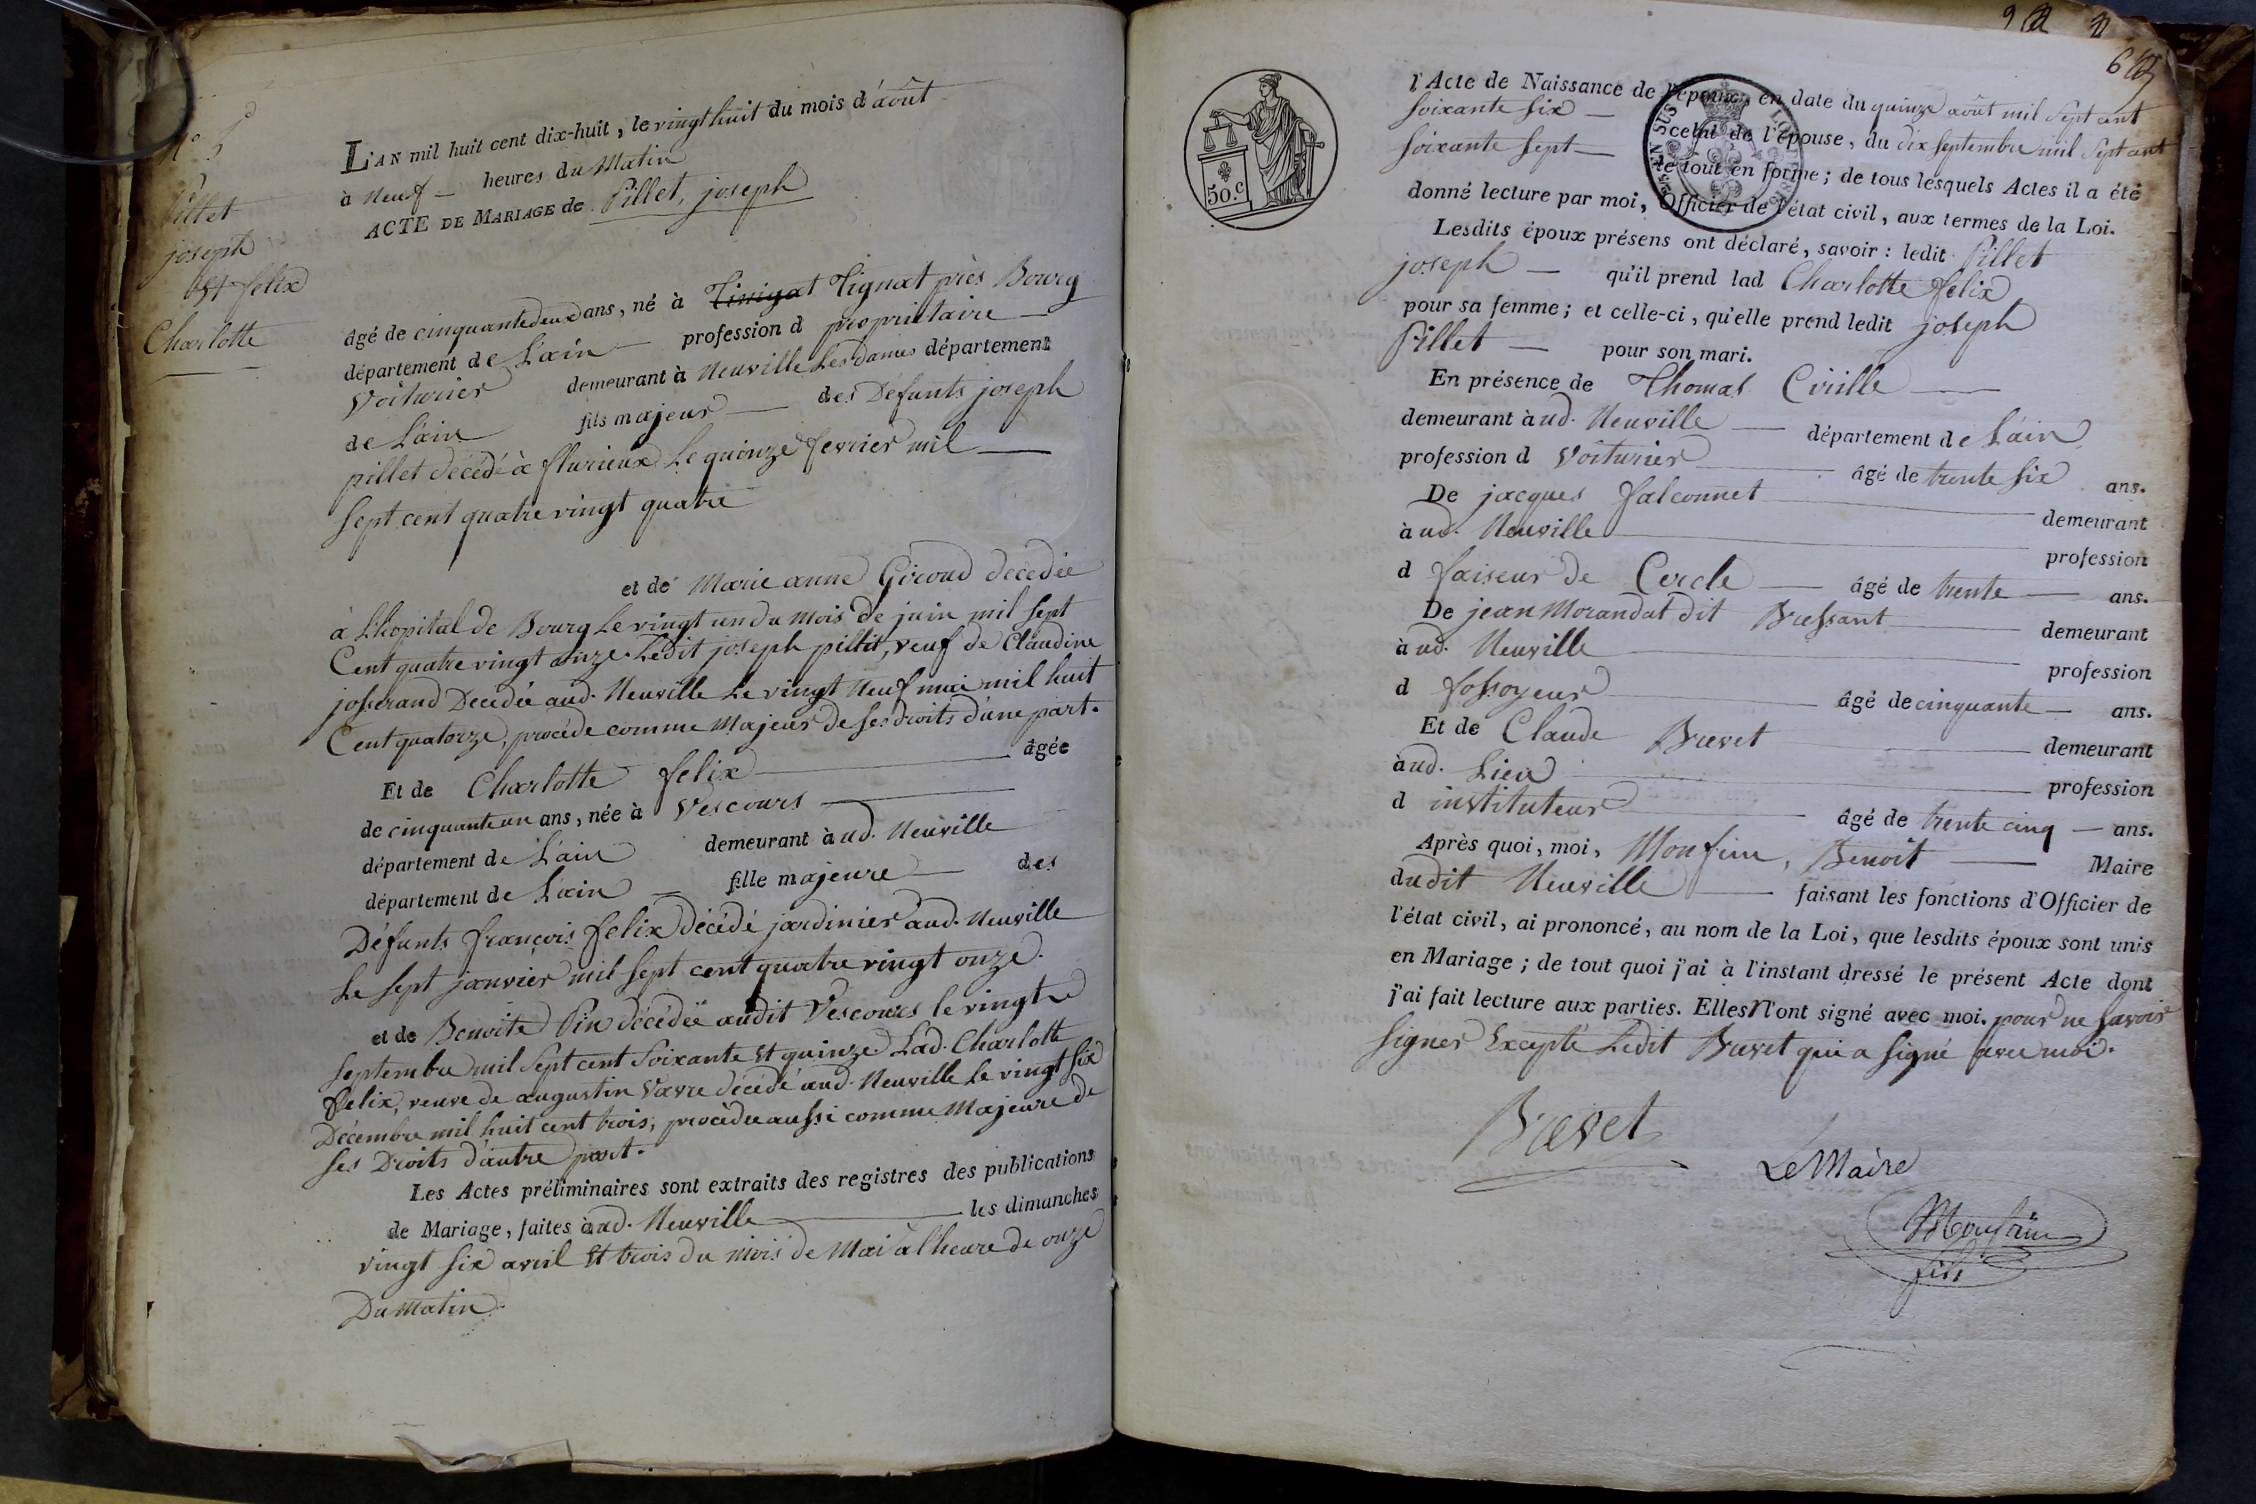 Pillet
joseph
et felix
Charlotte
L'AN mil huit cent dix-huit, le vingt huit du mois d'août
à Neuf — heures du Matin
ACTE DE MARIAGE de Pillet, joseph
âgé de cinquante deux ans, né à Tignat près Bourg
département de L'ain — profession d propriétaire —
Voiturier demeurant à Neuville Les dames département
de L'ain fils majeur — des Défunts joseph
pillet décédé à flurieux Le quinze fevrier mil —
Sept cent quatre vingt quatre
et de Marie anne Giroud decedée
à L'hopital de Bourg Le vingt un du mois de juin mil Sept
Cent quatre vingt onze. Ledit joseph pillet, veuf de Claudine
josserand Decedée aud. Neuville Le vingt Neuf mai mil huit
Cent quatorze, procède comme Majeur de Ses droits d'une part.
Et de Charlotte felix — âgée
de cinquante un ans, née à Vescours —
département de L'ain demeurant à ud. Neuville
département de L'ain — fille majeure — des
Défunts françois felix décédé jardinier aud. Neuville
Le Sept janvier mil Sept cent quatre vingt onze.
et de Benoite Pin décédée audit Vescours le vingt
Septembre mil Sept cent Soixante et quinze Lad. Charlotte
felix, veuve de augustin Vavre décédé aud. Neuville Le vingt Six
Décembre mil huit cent trois, procède aussi comme Majeure de
Ses Droits d'autre part.
Les Actes préliminaires sont extraits des registres des publications
de Mariage, faites à ud. Neuville — les dimanches
vingt Six avril et trois du mois de Mai à l'heure de onze
Du Matin.
50.c
l'Acte de Naissance de l'époux, en date du quinze août mil Sept cent
Soixante Six —
celui de l'épouse, du dix Septembre mil Sept cent
Soixante Sept —
le tout en forme; de tous lesquels Actes il a été
donné lecture par moi, Officier de l'état civil, aux termes de la Loi.
Lesdits époux présens ont déclaré, savoir: ledit Pillet
joseph — qu'il prend lad Charlotte felix
pour sa femme; et celle-ci, qu'elle prend ledit joseph
Pillet — pour son mari.
En présence de Thomas Cirille —
demeurant à ud. Neuville — département de L'ain
profession d Voiturier — âgé de trente Six ans.
De jacques falconnet — demeurant
à ud. Neuville — profession
d faiseur de Cercle — âgé de trente — ans.
De jean Morandat dit Bressant — demeurant
à ud. Neuville — profession
d fossoyeur — âgé de cinquante — ans.
Et de Claude Brevet — demeurant
à ud. Lieu — profession
d instituteur — âgé de trente cinq — ans.
Après quoi, moi, Monfin, Benoit — Maire
dudit Neuville — faisant les fonctions d'Officier de
l'état civil, ai prononcé, au nom de la Loi, que lesdits époux sont unis
en Mariage; de tout quoi j'ai à l'instant dressé le présent Acte dont
j'ai fait lecture aux parties. Elles N'ont signé avec moi. pour ne Savoir
Signer Excepté Ledit Brevet qui a Signé avec moi.
Brevet
Le Maire
fils